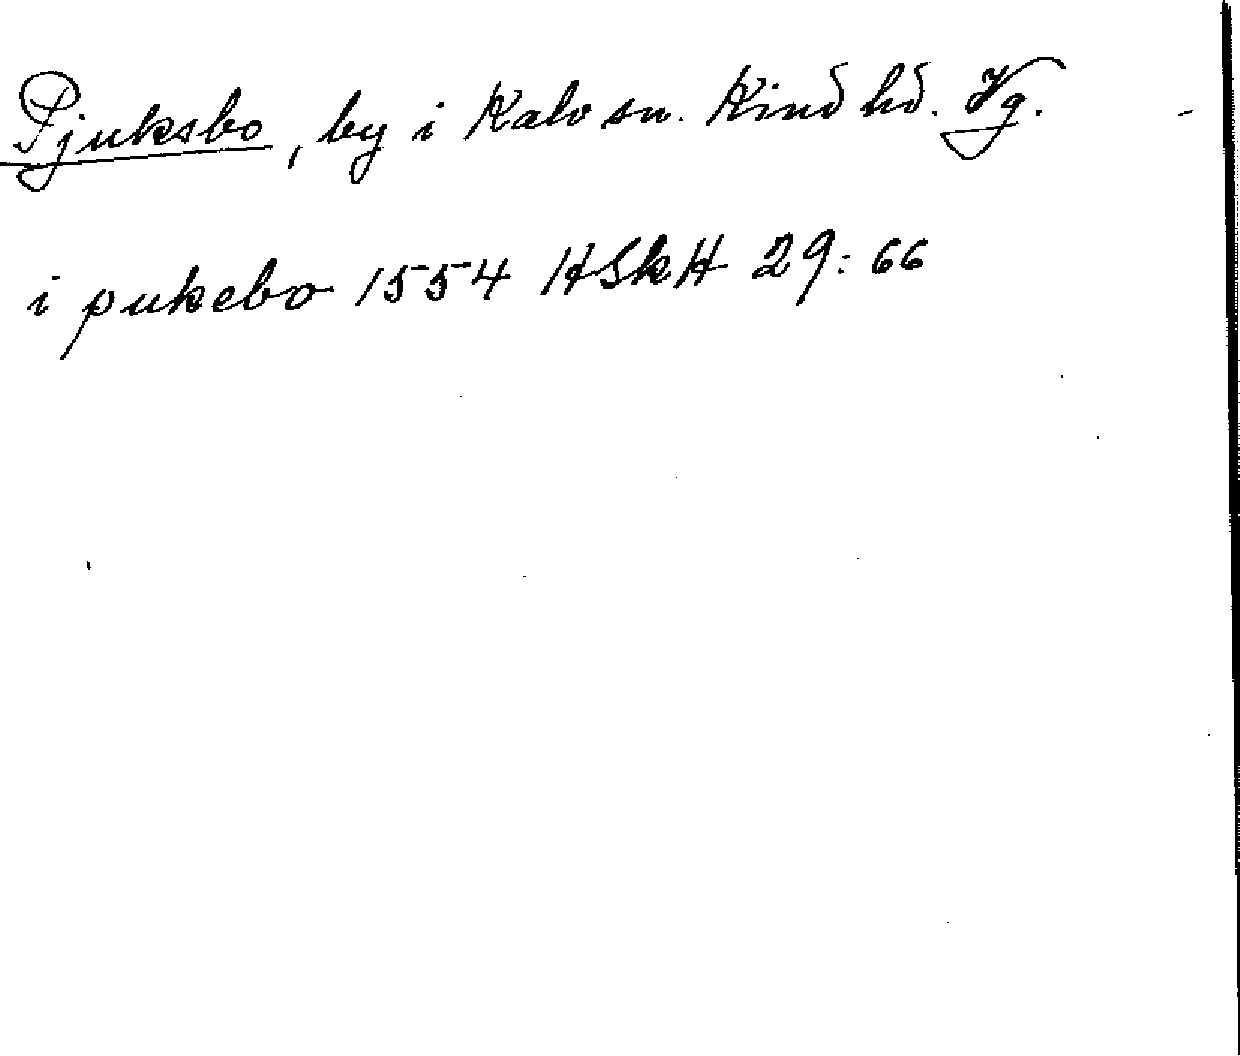 Pjuksbo, by i Kalv sn. Kind hd. Vg.
i pukebo 1554 HSkH 29:66